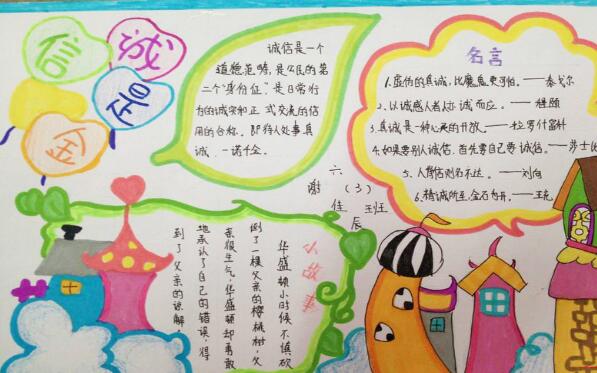 诚
信
是
金
诚信是一个
道德范畴,是公民的第
二个"身份证"是日常行
为的诚实和正式交流的信
用的合称。即待人处事真
诚、一诺千金。
名言
1.虚伪的真诚,比魔鬼更可怕。——泰戈尔
2.以诚感人者,人亦诚而应。——程颐
3.真诚是一种心灵的开放。——拉罗什富科
4.如果要别人诚信,首先要自己诚信。——莎士比
5.人背信则名不达。——刘向
6.精诚所至,金石为开。——王充
六(3)班
谢佳辰
小故事
华盛顿小时候不慎砍
倒了一棵父亲的樱桃树,父
亲很生气,华盛顿却勇敢
地承认了自己的错误,得
到了父亲的谅解